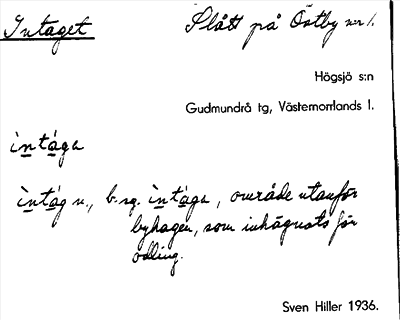 Intaget Slått på Östby nr 1.
Högsjö s:n
Gudmundrå tg, Västernorrlands l.
ìntága
ìntág n., b. sg. ìntága, område utanför
byhagen, som inhägnats för
odling.
Sven Hiller 1936.